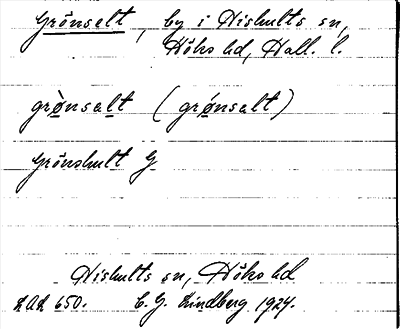 Grönselt, by i Hishults sn,
Höks hd, Hall. l.
grònsalt (grónsalt)
Grönshult G
Hishults sn, Höks hd
LAL 650. C. G. Lindberg 1924.